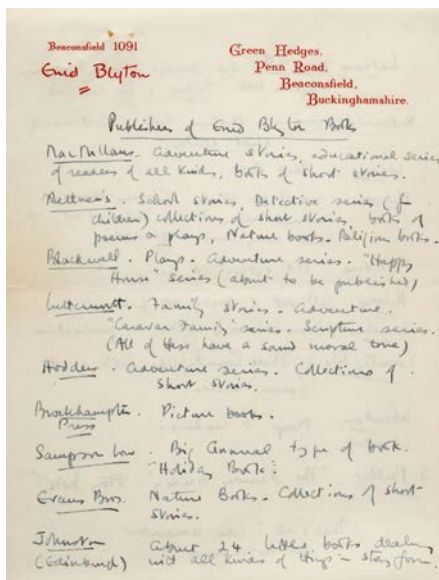 Beaconsfield 1091
Enid Blyton
Green Hedges,
Penn Road,
Beaconsfield,
Buckinghamshire.
Publishers of Enid Blyton Books
MacMillans. Adventure stories, educational series
of readers of all kinds, books of short stories.
Methuen's. School stories, Detective series (for
children) collections of short stories, books of
poems & plays, Nature books. Religious books.
Blackwell. Plays. Adventure series. "Happy
House" series (about to be published)
Lutterworth. Family stories. Adventure.
"Caravan Family" series. Scripture series.
(All of these have a sound moral tone)
Hodders. Adventure series. Collections of
short stories.
Brockhampton. Picture books.
Press
Sampson Low. Big Annual type of book.
"Holiday Book".
Evans Bros. Nature Books. Collections of short
stories.
Johnston About 24 books dealing
(Edinburgh) with all kinds of things - story form.